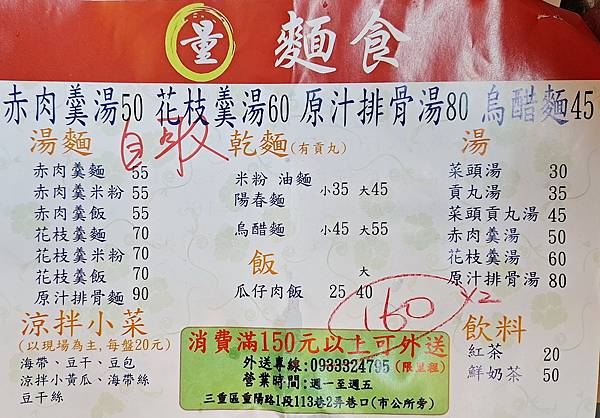 量 麵食
赤肉羹湯50 花枝羹湯60 原汁排骨湯80 烏醋麵45
湯麵
赤肉羹麵 55
赤肉羹米粉 55
赤肉羹飯 55
花枝羹麵 70
花枝羹米粉 70
花枝羹飯 70
原汁排骨麵 90
自取
乾麵(有貢丸)
米粉 油麵
陽春麵 小35 大45
烏醋麵 小45 大55
飯
大
瓜仔肉飯 25 40
湯
菜頭湯 30
貢丸湯 35
菜頭貢丸湯 45
赤肉羹湯 50
花枝羹湯 60
原汁排骨湯 80
160 x2
涼拌小菜
(以現場為主,每盤20元)
海帶、豆干、豆包
涼拌小黃瓜、海帶絲
豆干絲
消費滿150元以上可外送
外送專線:0933324795(限里程)
營業時間:週一至週五
三重區重陽路1段113巷2弄巷口(市公所旁)
飲料
紅茶 20
鮮奶茶 50